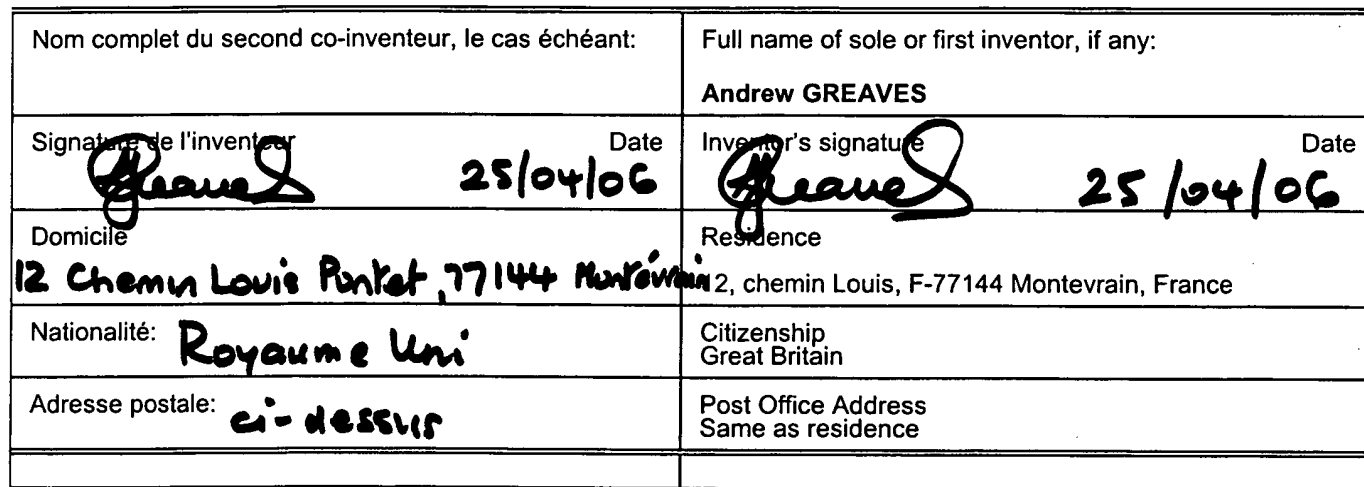 Nom complet du second co-inventeur, le cas échéant:
Full name of sole or first inventor, if any:
Andrew GREAVES
Signature de l'inventeur Date
25/04/06
Inventor's signature Date
25/04/06
Domicile
12 Chemin Louis Pontet, 77144 Montévrain
Residence
2, chemin Louis, F-77144 Montevrain, France
Nationalité: Royaume Uni
Citizenship
Great Britain
Adresse postale: ci-dessus
Post Office Address
Same as residence